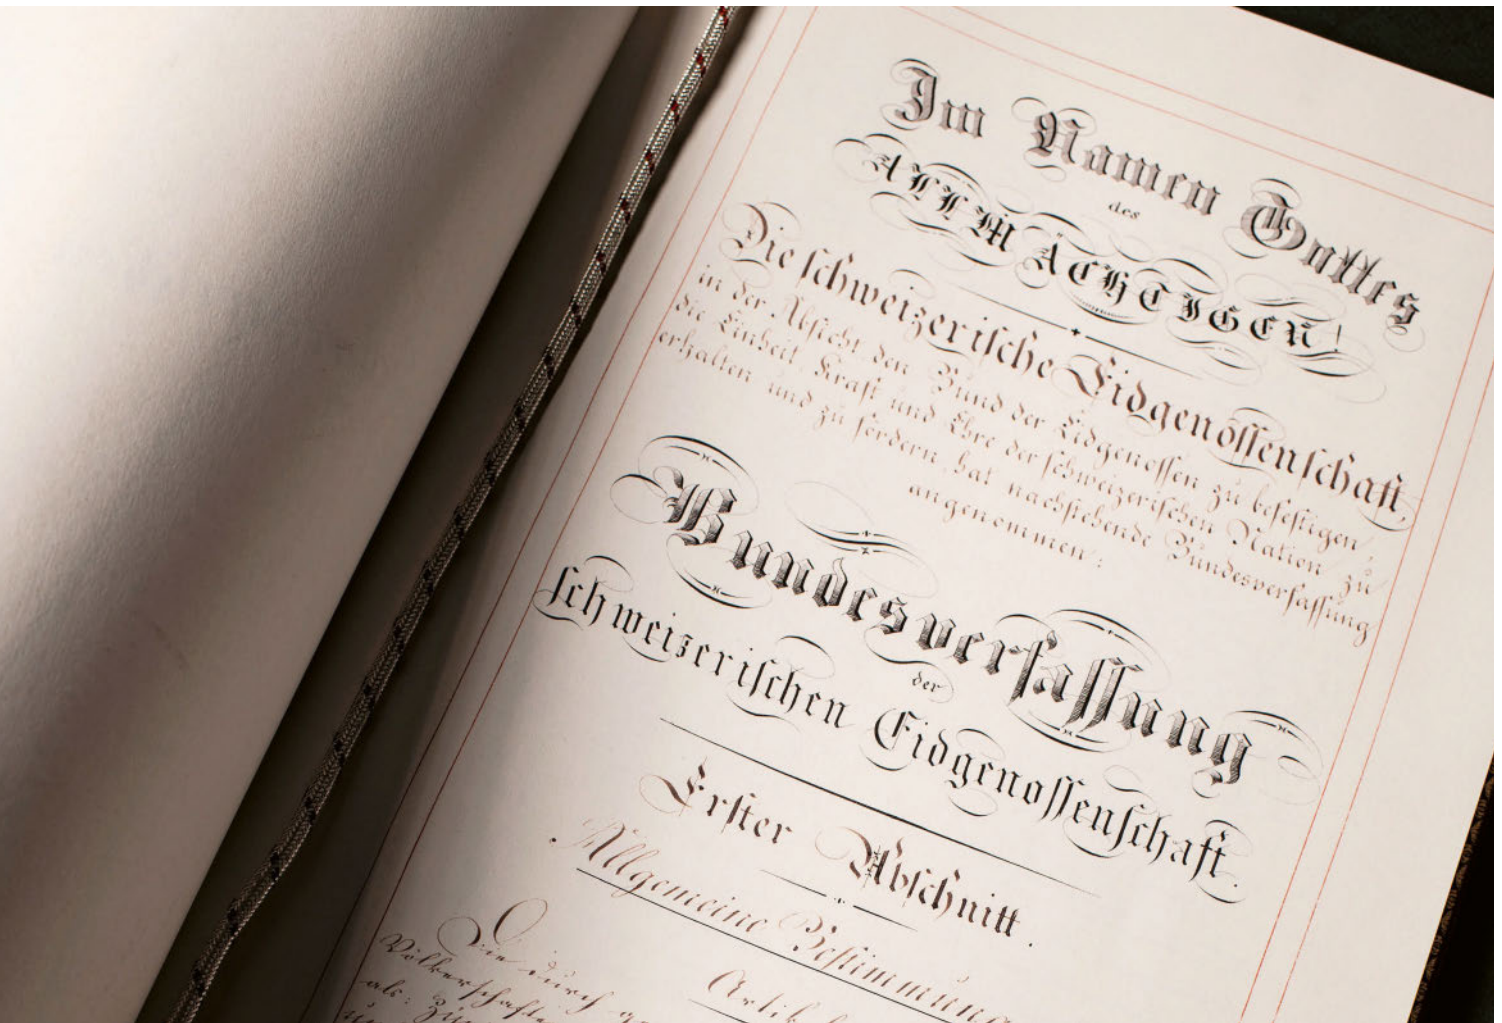 Im Namen Gottes
des
ALLMÄCHTIGEN!
Die schweizerische Eidgenossenschaft,
in der Absicht, den Bund der Eidgenossen zu befestigen,
die Einheit, Kraft und Ehre der schweizerischen Nation zu
erhalten und zu fördern, hat nachstehende Bundesverfassung
angenommen:
Bundesverfassung
der
schweizerischen Eidgenossenschaft.
Erster Abschnitt.
Allgemeine Bestimmung
Artik
Die durch
Völkerschaft
als: Zür